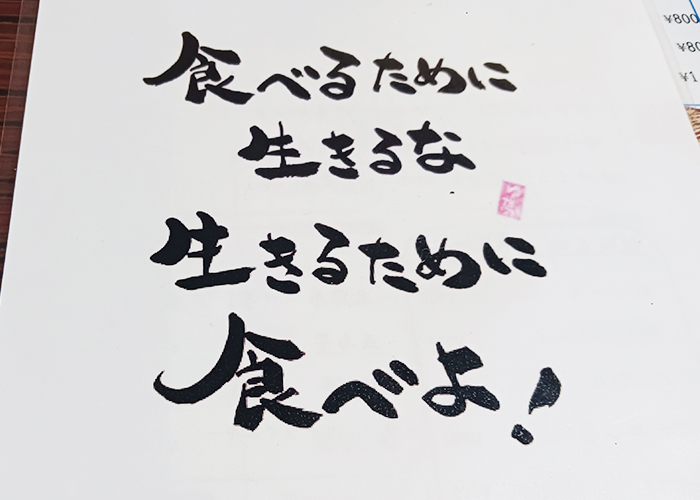 食べるために
生きるな
生きるために
食べよ!
¥800
¥80
¥1